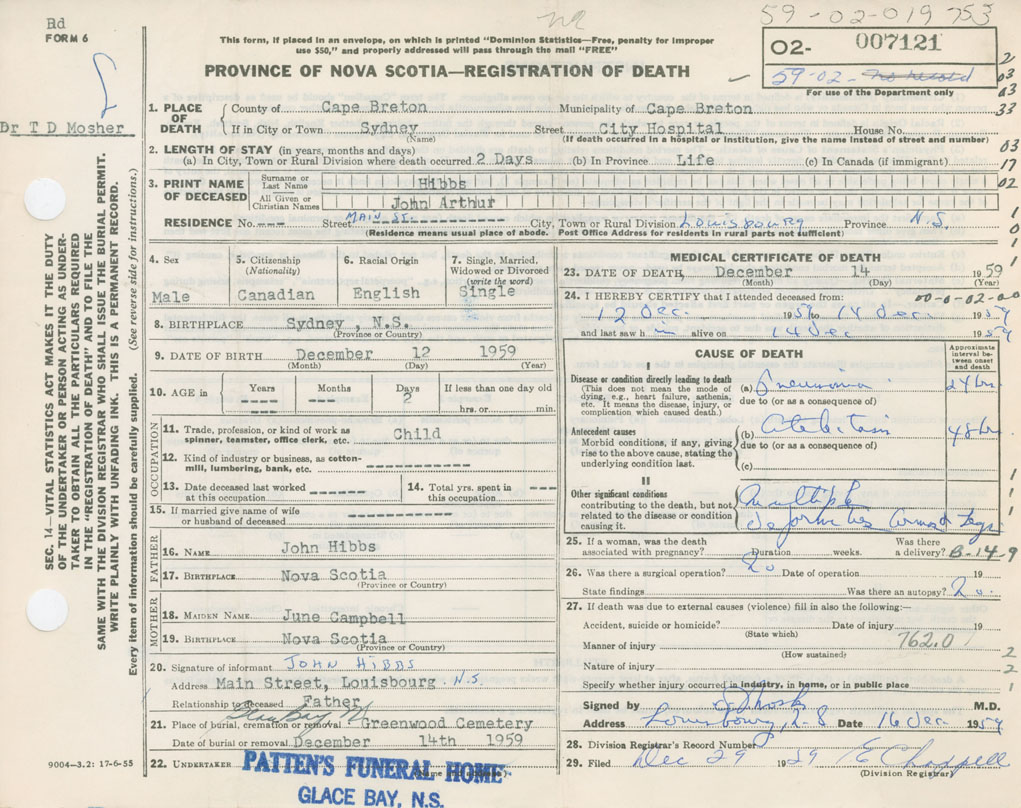 Rd
FORM 6
59-02-019753
This form, if placed in an envelope, on which is printed "Dominion Statistics—Free, penalty for improper
use $50," and properly addressed will pass through the mail "FREE"
02- 007121
PROVINCE OF NOVA SCOTIA—REGISTRATION OF DEATH
59-02-
For use of the Department only
2
03
03
33
03
17
02
Dr T D Mosher
SEC. 14—VITAL STATISTICS ACT MAKES IT THE DUTY
OF THE UNDERTAKER OR PERSON ACTING AS UNDER-
TAKER TO OBTAIN ALL THE PARTICULARS REQUIRED
IN THE "REGISTRATION OF DEATH" AND TO FILE THE
SAME WITH THE DIVISION REGISTRAR WHO SHALL ISSUE THE BURIAL PERMIT.
WRITE PLAINLY WITH UNFADING INK. THIS IS A PERMANENT RECORD.
Every item of information should be carefully supplied. (See reverse side for instructions.)
1. PLACE OF DEATH County of Cape Breton Municipality of Cape Breton
If in City or Town Sydney Street City Hospital House No.
(Name) (If death occurred in a hospital or institution, give the name instead of street and number)
2. LENGTH OF STAY (in years, months and days)
(a) In City, Town or Rural Division where death occurred 2 Days (b) In Province Life (c) In Canada (if immigrant)
3. PRINT NAME OF DECEASED Surname or Last Name Hibbs
All Given or Christian Names John Arthur
RESIDENCE No. --- Street MAIN ST. City, Town or Rural Division Louisbourg Province N.S.
(Residence means usual place of abode. Post Office Address for residents in rural parts not sufficient)
4. Sex Male
5. Citizenship (Nationality) Canadian
6. Racial Origin English
7. Single, Married, Widowed or Divorced (write the word) Single
8. BIRTHPLACE Sydney, N.S.
(Province or Country)
9. DATE OF BIRTH December 12 1959
(Month) (Day) (Year)
10. AGE in Years ---- Months --- Days 2 If less than one day old
hrs. or min.
OCCUPATION
11. Trade, profession, or kind of work as spinner, teamster, office clerk, etc. Child
12. Kind of industry or business, as cotton-mill, lumbering, bank, etc. ------------
13. Date deceased last worked at this occupation ------ 14. Total yrs. spent in this occupation ---
15. If married give name of wife or husband of deceased ------------
FATHER
16. NAME John Hibbs
17. BIRTHPLACE Nova Scotia
(Province or Country)
MOTHER
18. MAIDEN NAME June Campbell
19. BIRTHPLACE Nova Scotia
(Province or Country)
20. Signature of informant JOHN HIBBS
Address Main Street, Louisbourg N.S.
Relationship to deceased Father
21. Place of burial, cremation or removal Glace Bay Greenwood Cemetery
Date of burial or removal December 14th 1959
22. UNDERTAKER PATTEN'S FUNERAL HOME
(Name and address)
GLACE BAY, N.S.
9004—3.2: 17-6-55
MEDICAL CERTIFICATE OF DEATH
23. DATE OF DEATH, December 14 1959
(Month) (Day) (Year)
24. I HEREBY CERTIFY that I attended deceased from: 00-0-02-00
12 Dec. 1959 to 14 Dec 1959
and last saw him alive on 14 Dec 1959
CAUSE OF DEATH
Approximate interval between onset and death
I
Disease or condition directly leading to death
(This does not mean the mode of dying, e.g., heart failure, asthenia, etc. It means the disease, injury, or complication which caused death.)
(a) Pneumonia 24 hrs
due to (or as a consequence of)
Antecedent causes
Morbid conditions, if any, giving rise to the above cause, stating the underlying condition last.
(b) Atelectasis 48 hrs
due to (or as a consequence of)
(c)
II
Other significant conditions
contributing to the death, but not related to the disease or condition causing it.
Multiple
deformities Arms & Legs
25. If a woman, was the death associated with pregnancy? Duration weeks. Was there a delivery? B-14-9
26. Was there a surgical operation? No Date of operation 19
State findings Was there an autopsy? No.
27. If death was due to external causes (violence) fill in also the following:—
Accident, suicide or homicide? Date of injury 19
(State which)
Manner of injury 762.0
(How sustained)
Nature of injury
Specify whether injury occurred in industry, in home, or in public place
Signed by M.D.
Address Louisbourg, N.S Date 16 Dec 1959
28. Division Registrar's Record Number
29. Filed Dec 29 1959 E Chappell
(Division Registrar)